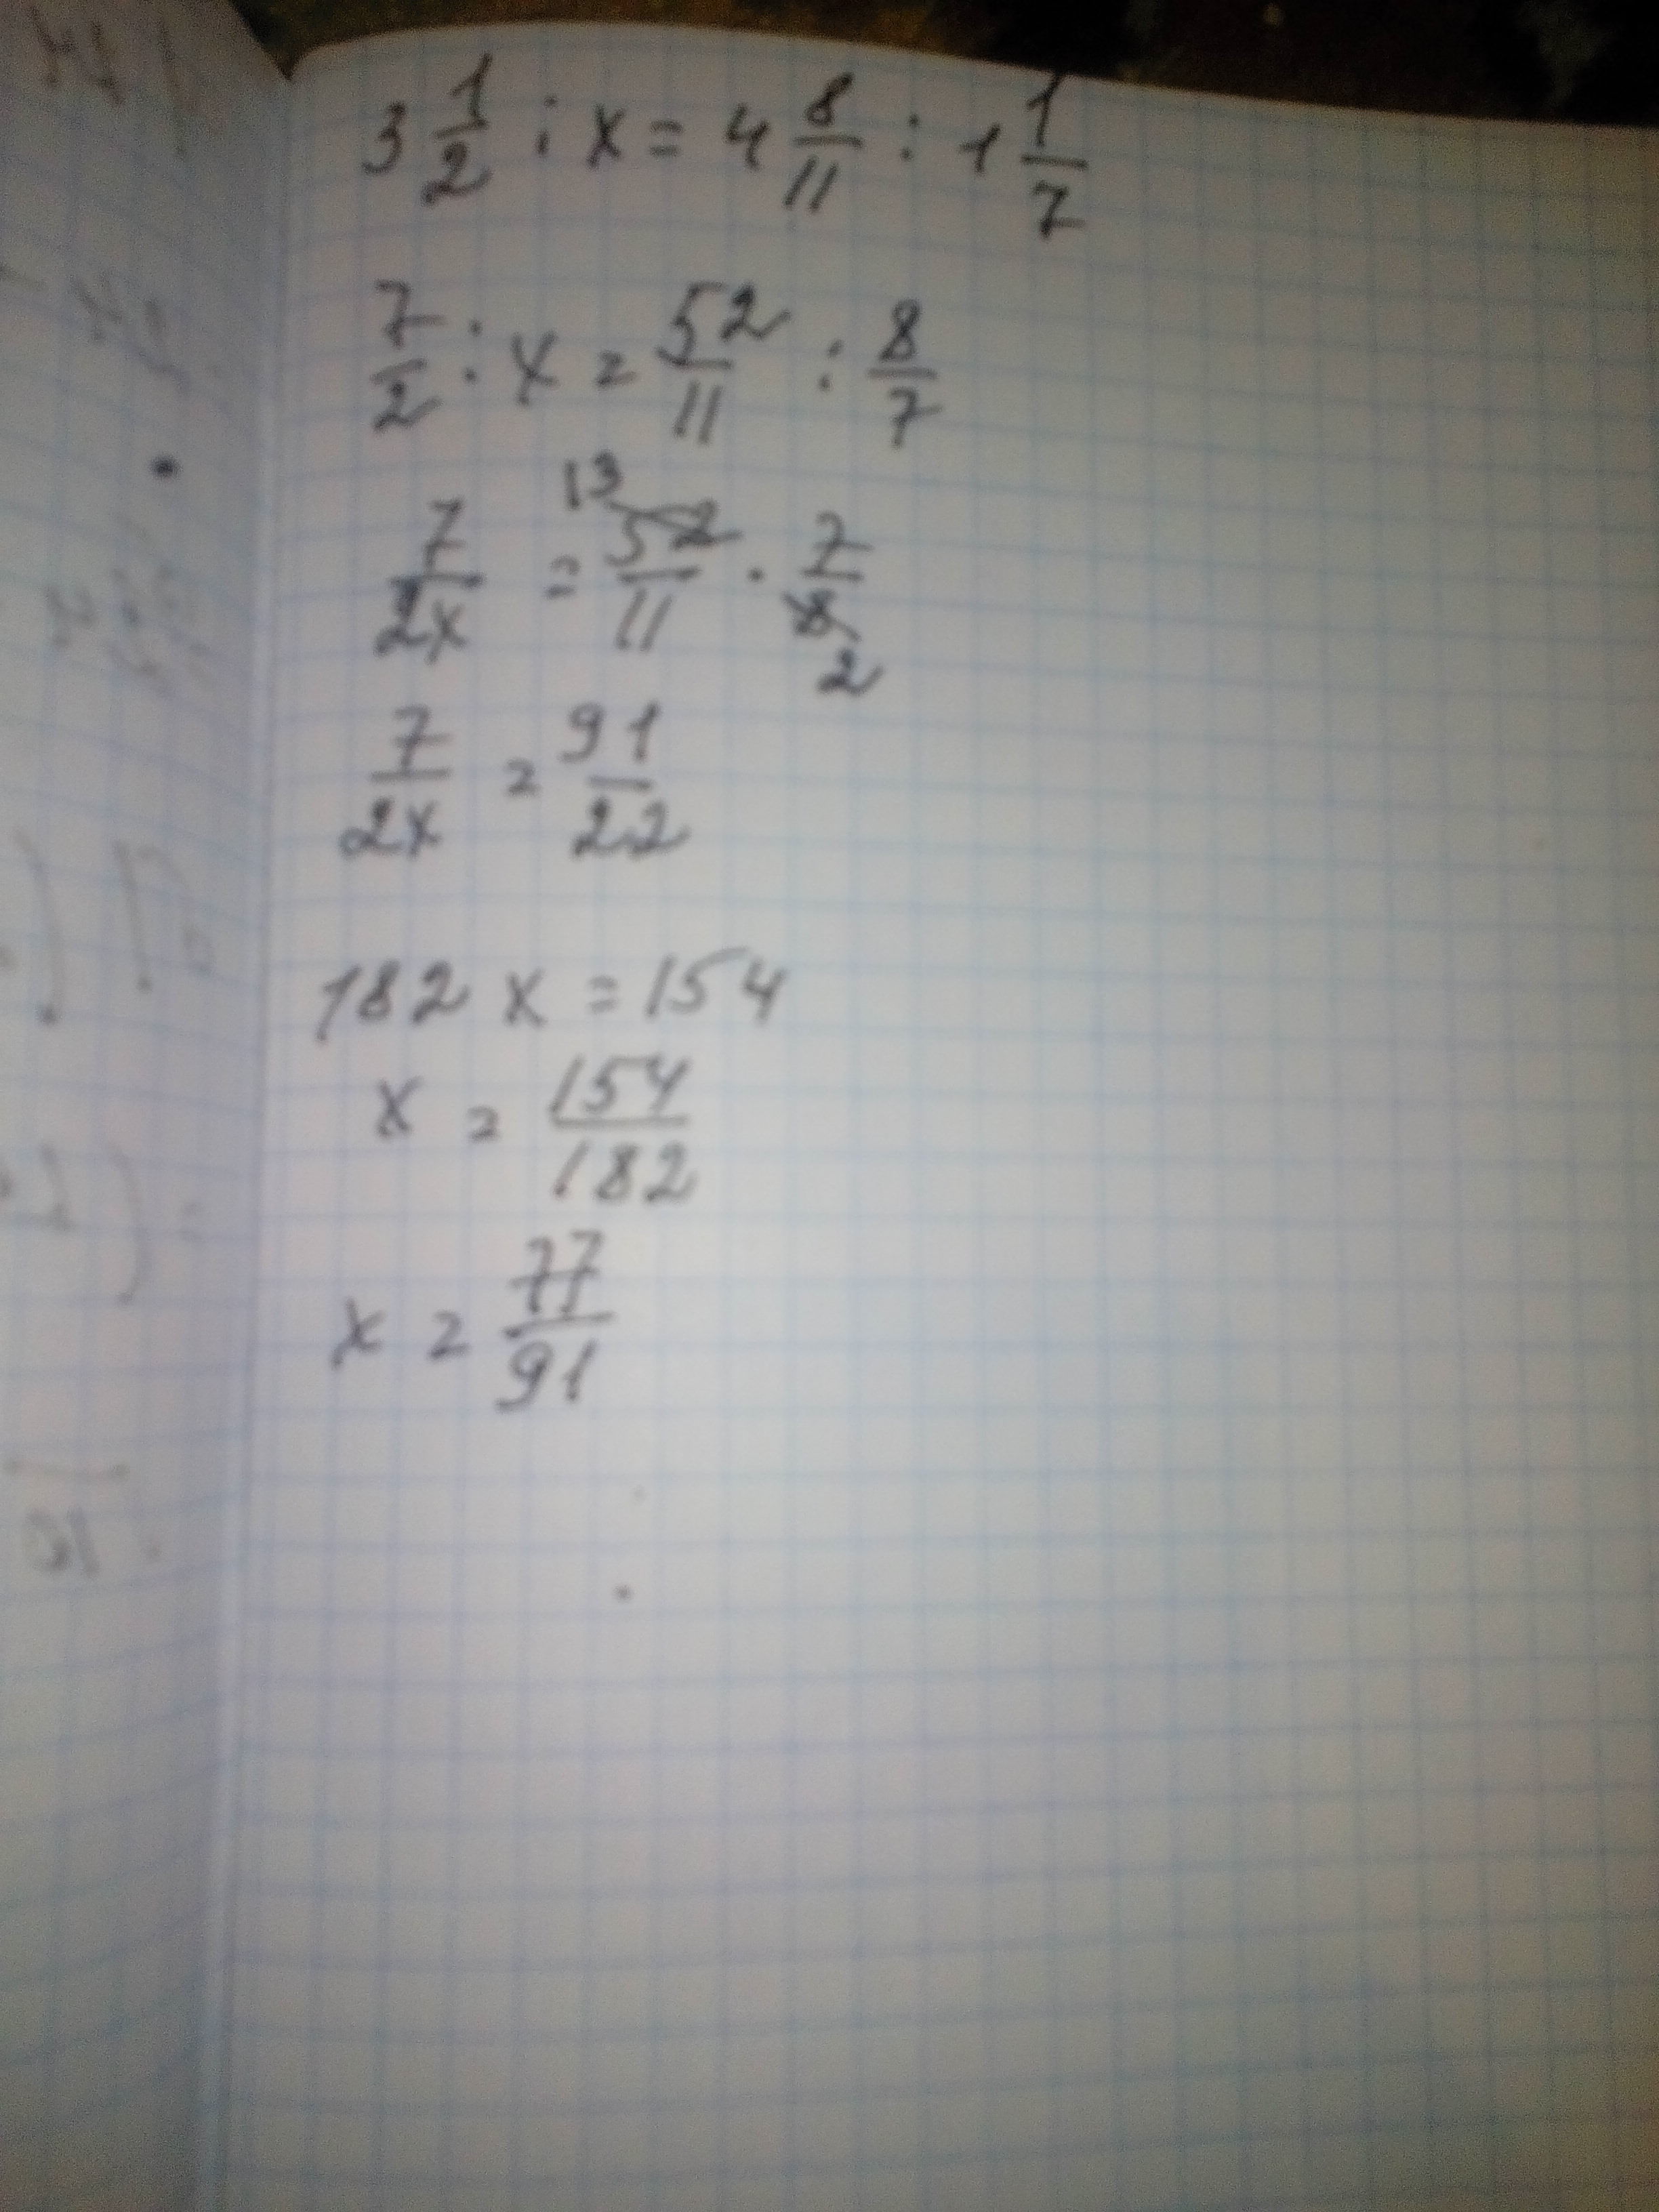 3 1/2 : x = 4 8/11 : 1 1/7
7/2 : x = 52/11 : 8/7
13
7/2x = 52/11 · 7/8
2
7/2x = 91/22
182 x = 154
x = 154/182
x = 77/91